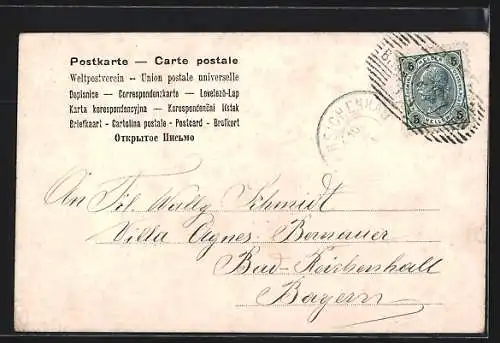 Postkarte — Carte postale
Weltpostverein - Union postale universelle
Dopisnice - Correspondenzkarte - Levelező-Lap
Karta korespondencyjna - Korespondenčni listek
Briefkaart - Cartolina postale - Postcard - Brefkort
Открытое Письмо
REICHENBERG
5 5
HELLER
5 5
An Frl. Wally Schmidt
Villa Agnes-Bermauer
Bad-Reichenhall
Bayern